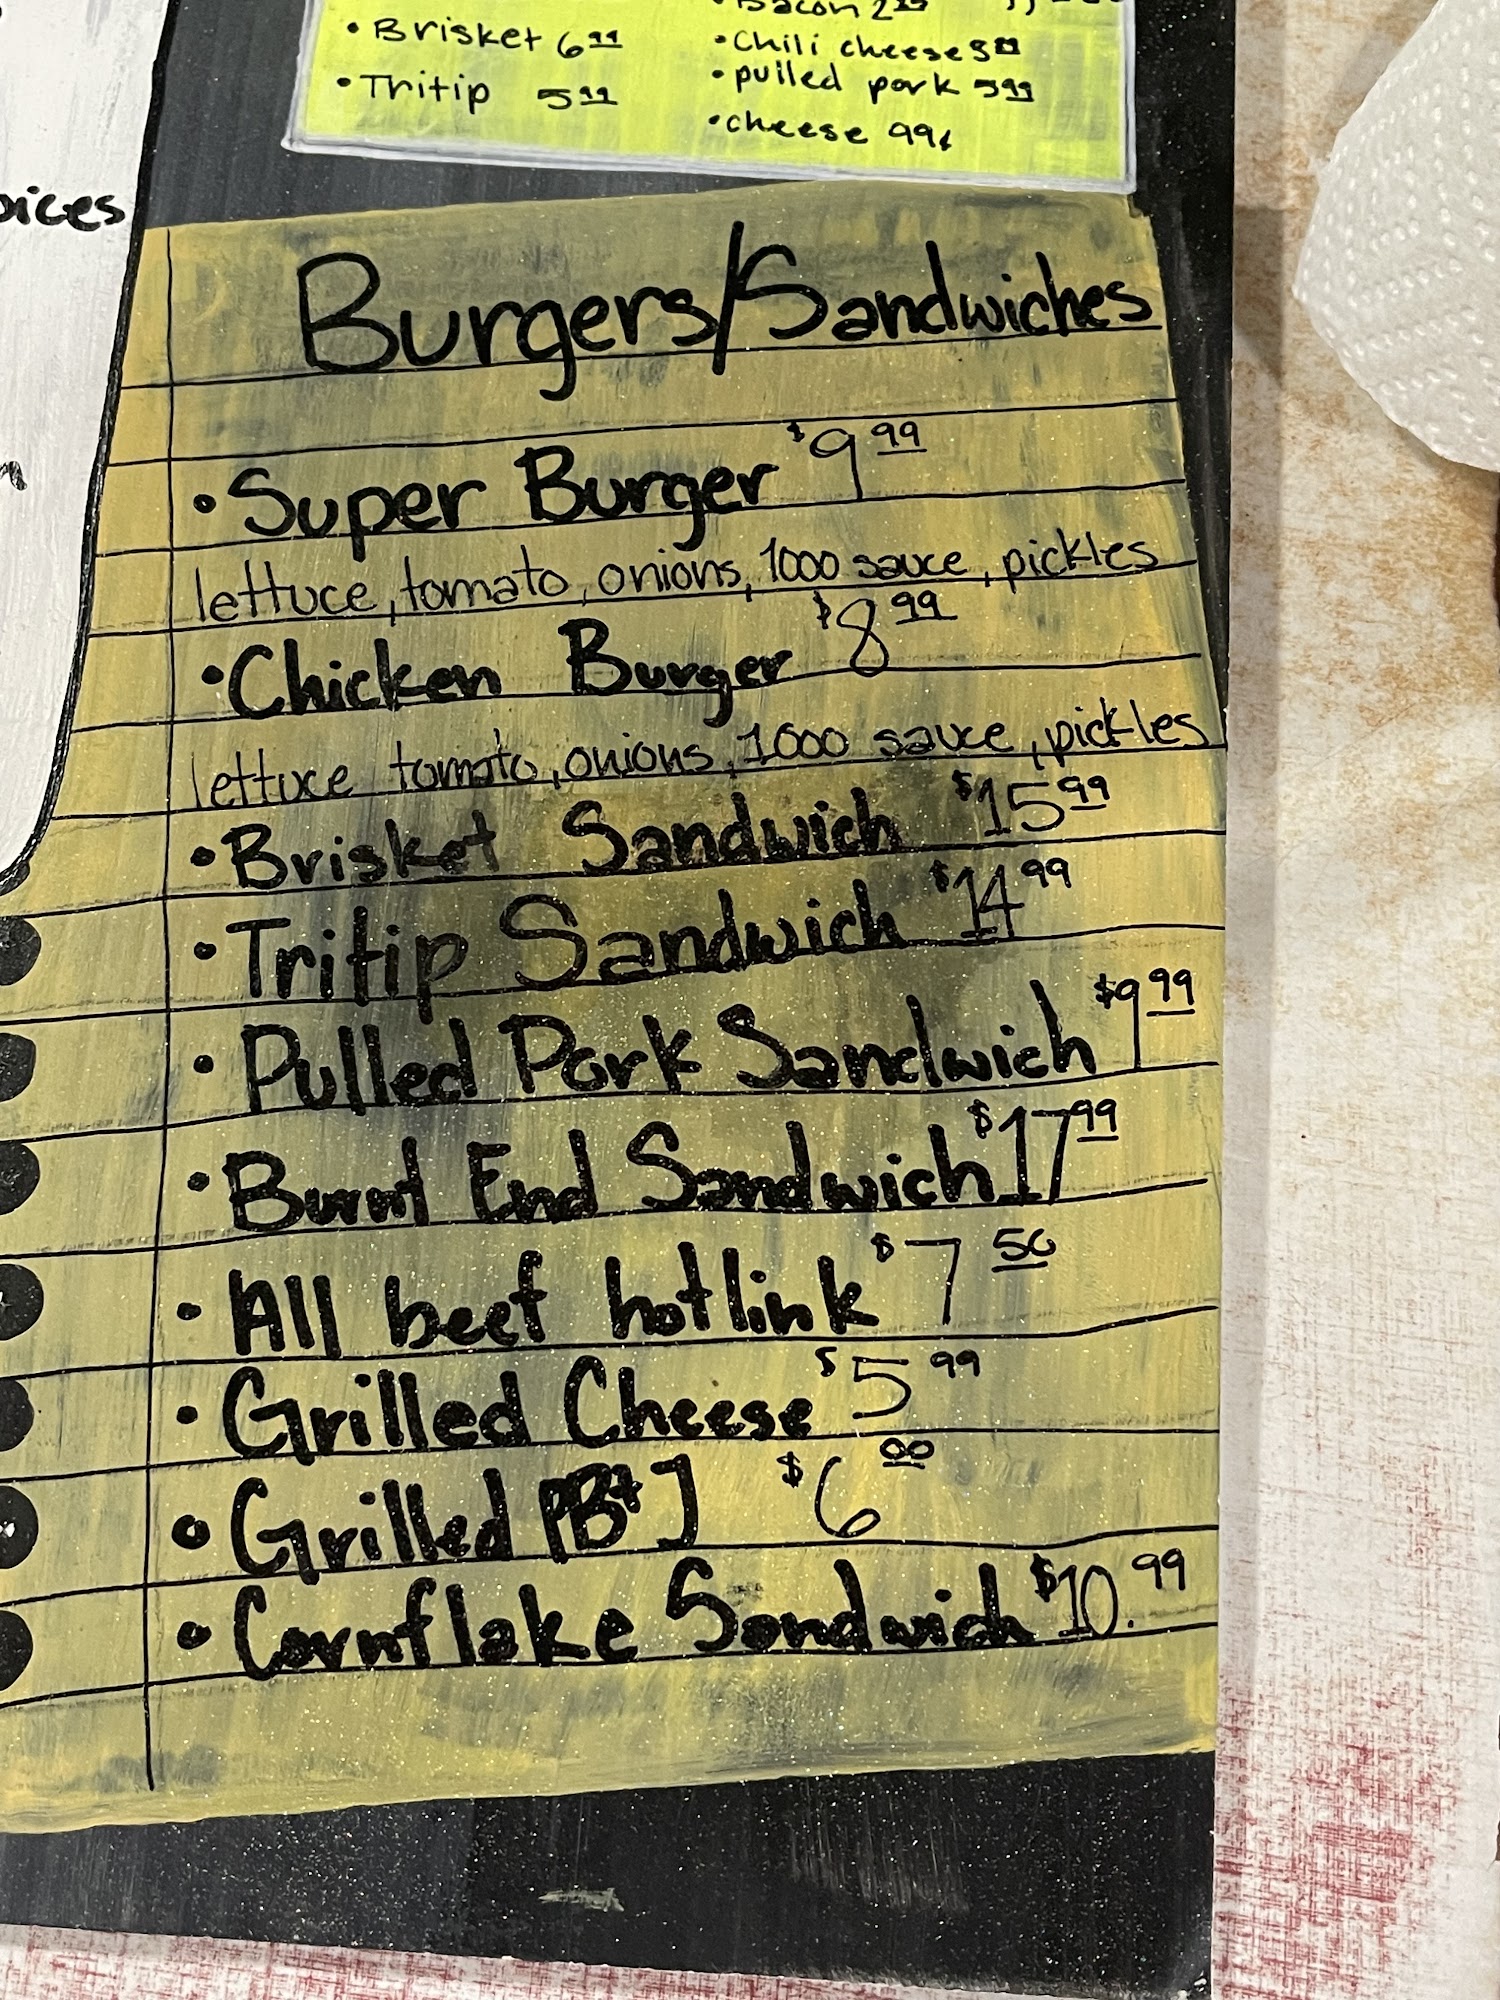 • Brisket 6.99
• Tritip 5.99
• Chili cheese
• pulled pork 5.99
• cheese 99¢
Burgers/Sandwiches
• Super Burger $9.99
lettuce, tomato, onions, 1000 sauce, pickles
• Chicken Burger $8.99
lettuce tomato, onions, 1000 sauce, pickles
• Brisket Sandwich $15.99
• Tritip Sandwich $14.99
• Pulled Pork Sandwich $9.99
• Burnt End Sandwich $17.99
• All beef hotlink $7.50
• Grilled Cheese $5.99
• Grilled PB+J $6.00
• Cornflake Sandwich $10.99